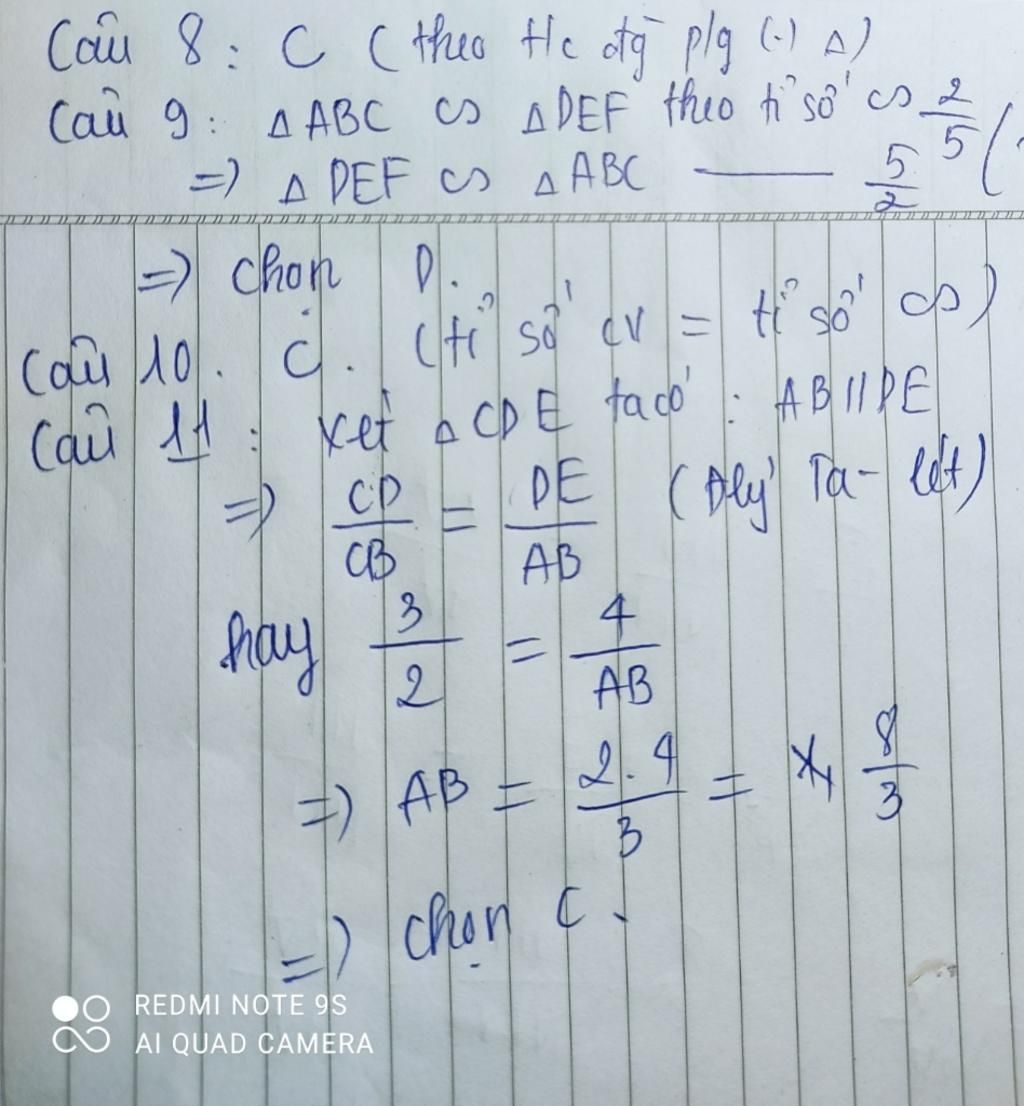 Câu 8 : C (theo t/c đtg p/g (-) Δ)
Câu 9 : Δ ABC ∽ Δ DEF theo tỉ số ∽ 2/5 (
=> Δ DEF ∽ Δ ABC —— 5/2
=> chọn D.
Câu 10. C. (tỉ số CV = tỉ số ∽)
Câu 11 : Xét Δ CDE ta có : AB // DE
=> CD/CB = DE/AB (Đlý Ta-lét)
hay 3/2 = 4/AB
=> AB = 2.4/3 = 8/3
=> chọn C.
REDMI NOTE 9S
AI QUAD CAMERA